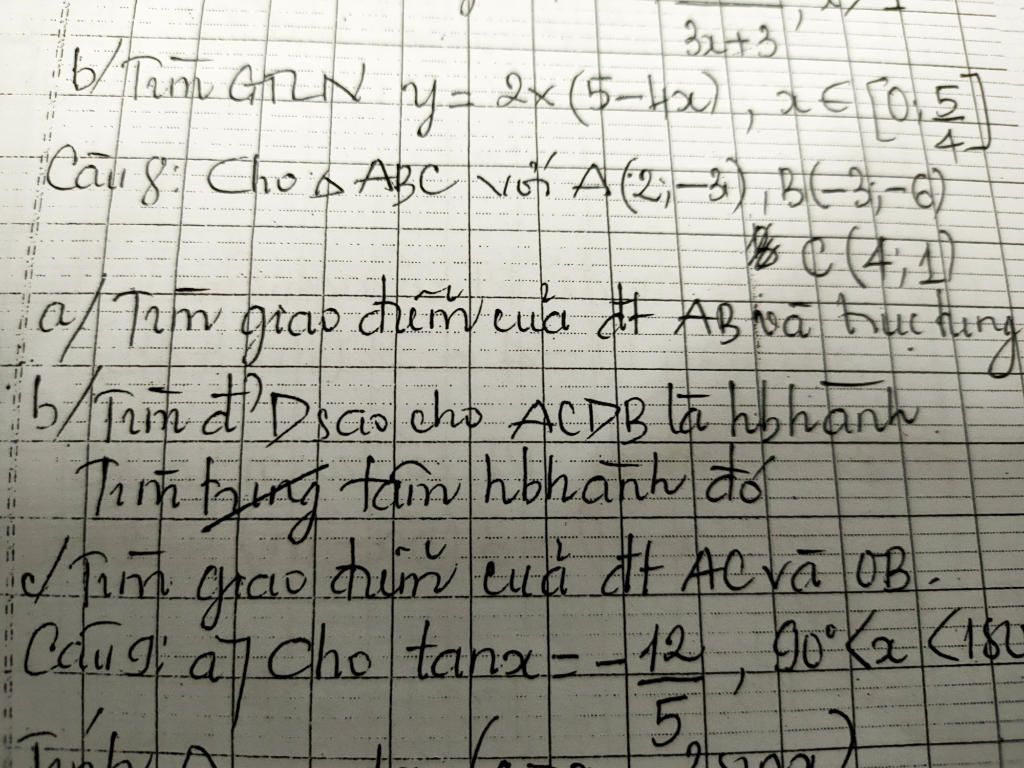 3x+3
b/ Tìm GTLN y = 2x(5-4x), x ∈ [0; 5/4]
Câu 8: Cho Δ ABC với A(2;-3), B(-3;-6)
C(4;1)
a/ Tìm giao điểm của đt AB và trục tung
b/ Tìm đ' D sao cho ACDB là hbhành.
Tìm tâm hbhành đó
c/ Tìm giao điểm của đt AC và OB.
Câu 9: a] Cho tanx = -12/5, 90° < x < 180